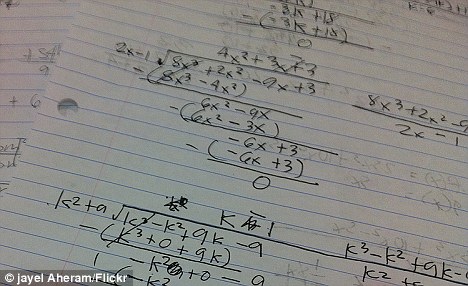 -(3k+18)
0
4x²+3x-3
2x-1 √8x³+2x²-9x+3
-(8x³-4x²)
6x²-9x
-(6x²-3x)
-6x+3
-(-6x+3)
0
8x³+2x²-9
2x-1
+ 6
k-1
k²+9 √k³-k²+9k-9
-(k³+0+9k)
-k²+0-9
-k²
k³-k²+9k-
k²+9
© jayel Aheram/Flickr